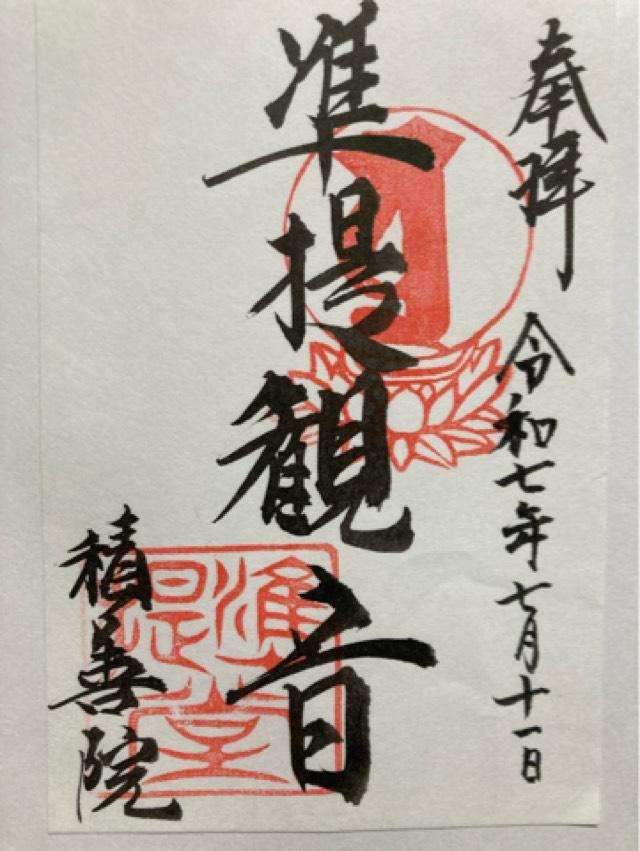 奉拝 令和七年七月十一日
准提観音
積善院
准提堂